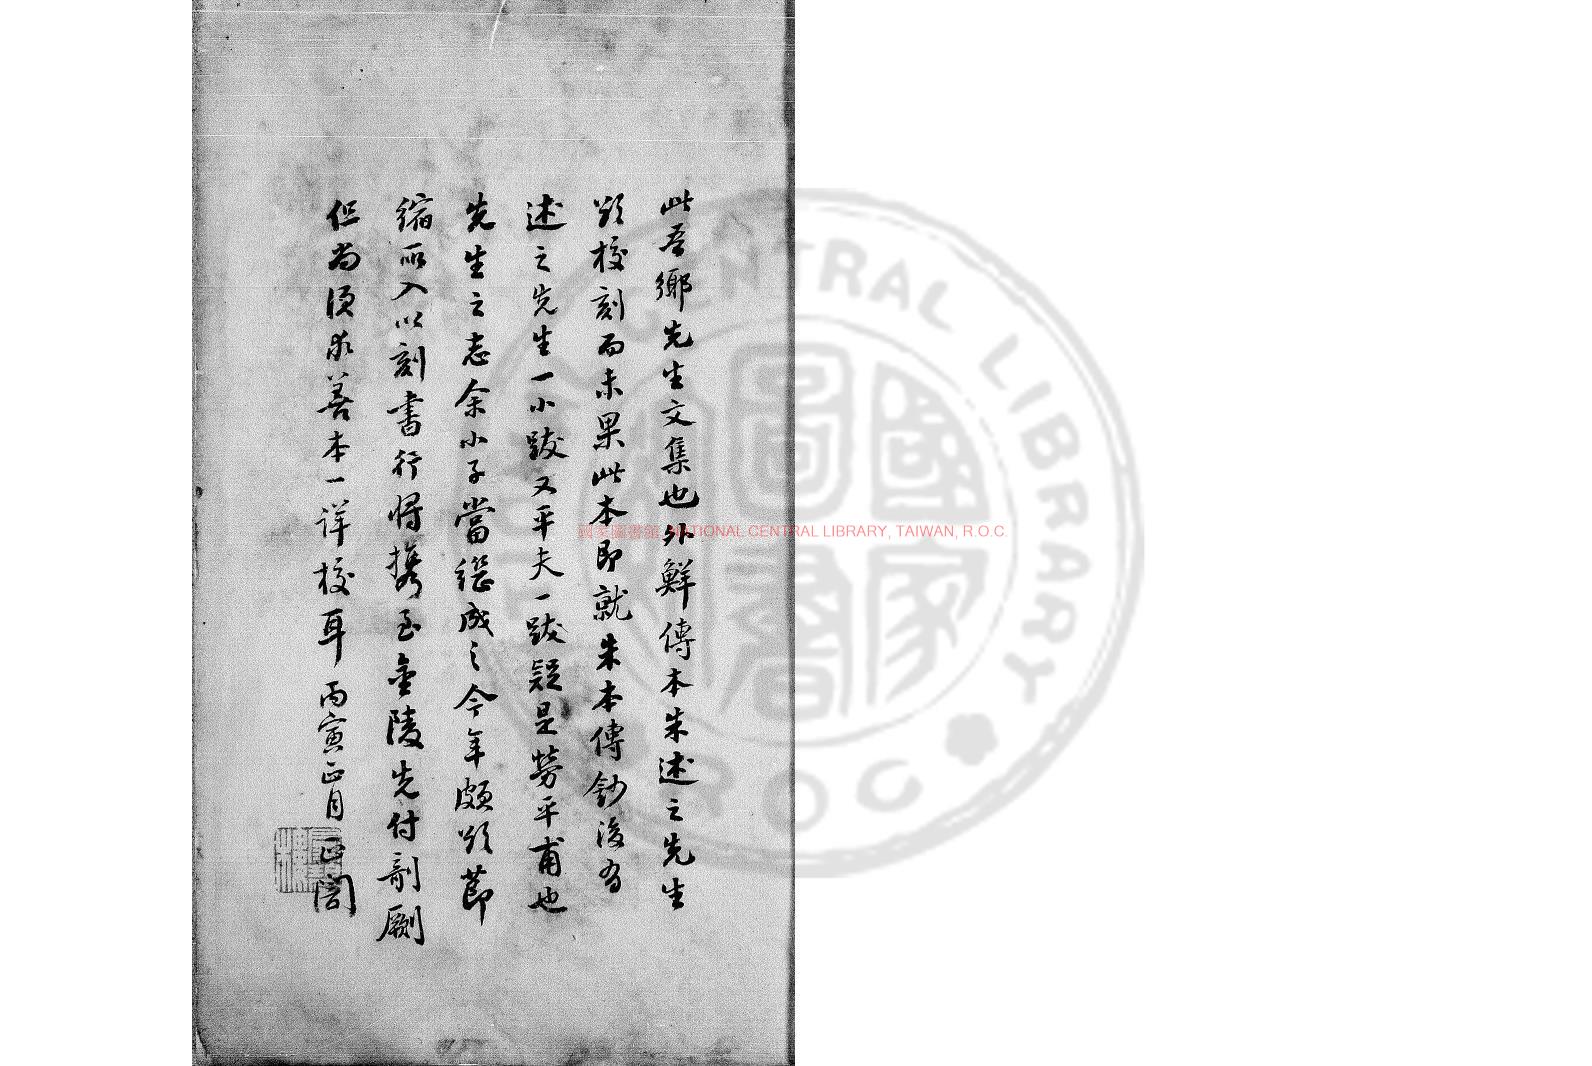 此吾鄉先生文集也外鮮傳本朱述之先生
欲校刻而未果此本即就朱本傳鈔後有
述之先生一小跋又平夫一跋疑是勞平甫也
先生之志余小子當繼成之今年頗欲節
縮所入以刻書行將攜至金陵先付剞劂
但尚須求善本一詳校耳丙寅正月正闇
國家圖書館 NATIONAL CENTRAL LIBRARY, TAIWAN, R.O.C.
CENTRAL LIBRARY
ROC
國家圖書館